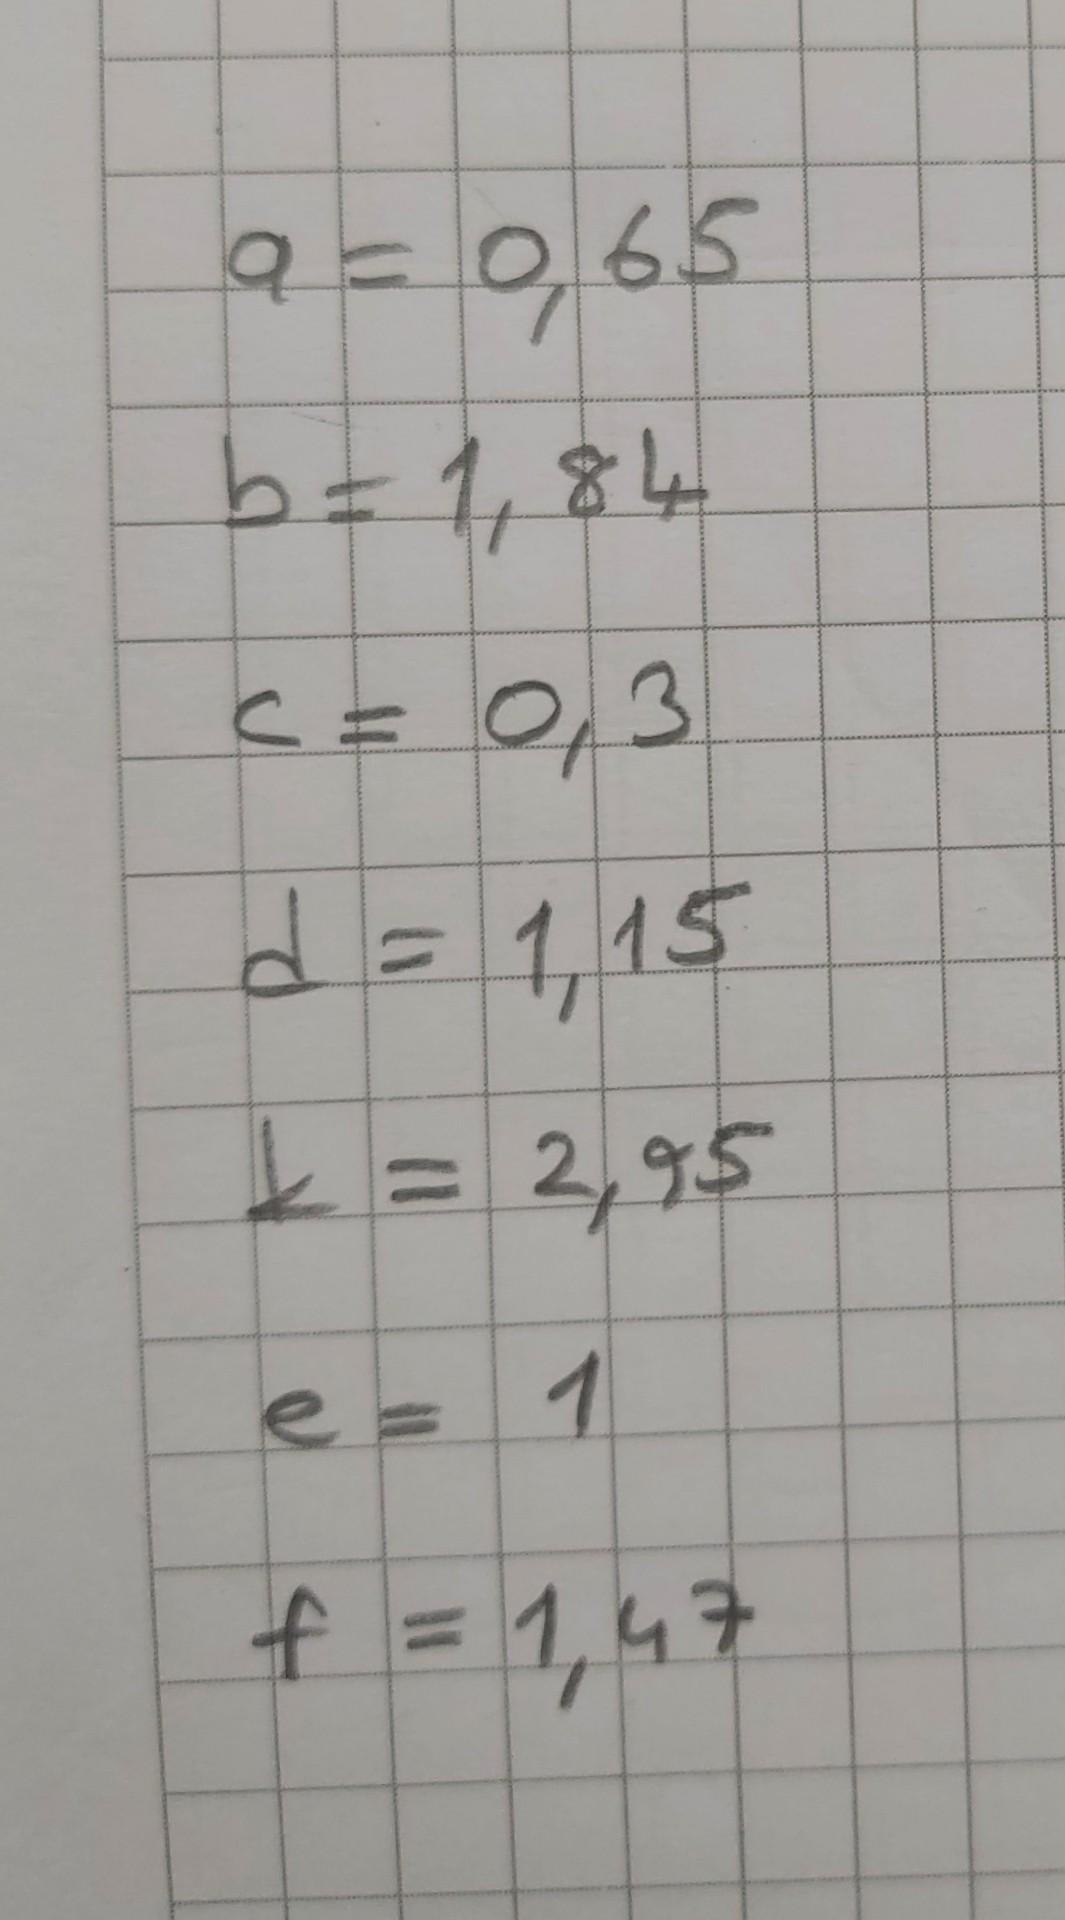 a = 0,65
b = 1,84
c = 0,3
d = 1,15
k = 2,95
e = 1
f = 1,47